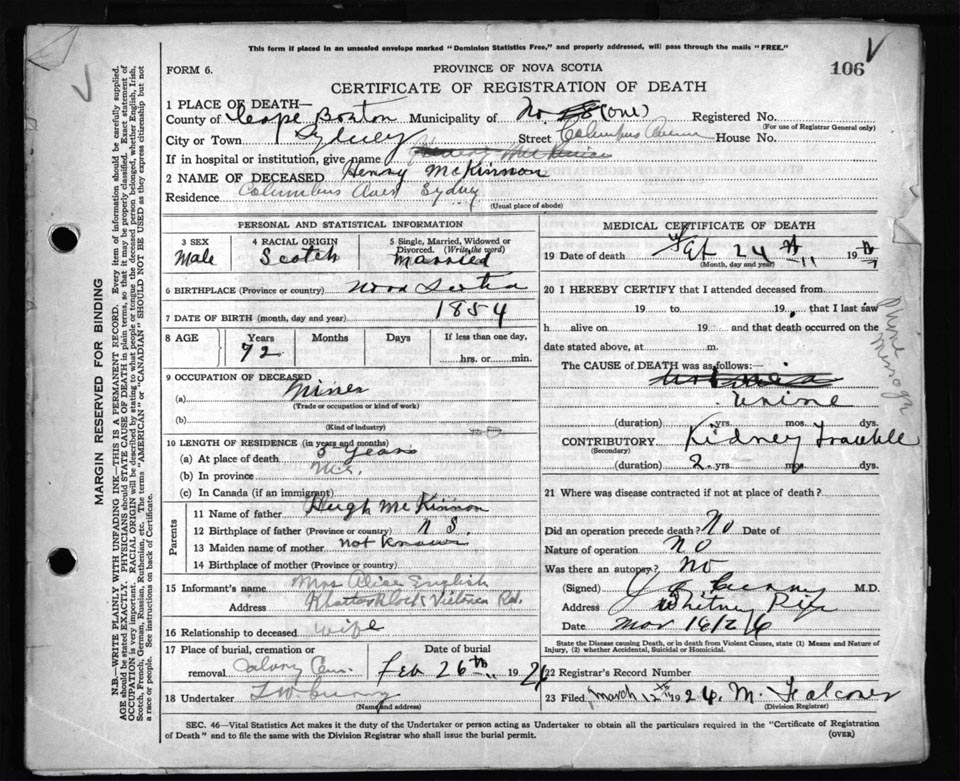 This form if placed in an unsealed envelope marked "Dominion Statistics Free," and properly addressed, will pass through the mails "FREE."
FORM 6.
PROVINCE OF NOVA SCOTIA
106
CERTIFICATE OF REGISTRATION OF DEATH
1 PLACE OF DEATH—
County of Cape Breton Municipality of No (one) Registered No.
(For use of Registrar General only)
City or Town Sydney Street Columbus Avenue House No.
If in hospital or institution, give name
2 NAME OF DECEASED Henry McKinnon
Residence Columbus Ave Sydney
(Usual place of abode)
PERSONAL AND STATISTICAL INFORMATION
3 SEX
Male
4 RACIAL ORIGIN
Scotch
5 Single, Married, Widowed or Divorced. (Write the word)
Married
6 BIRTHPLACE (Province or country) Nova Scotia
7 DATE OF BIRTH (month, day and year) 1854
8 AGE
Years Months Days If less than one day,
72 hrs. or min.
9 OCCUPATION OF DECEASED
(a) Miner
(Trade or occupation or kind of work)
(b)
(Kind of industry)
10 LENGTH OF RESIDENCE (in years and months)
(a) At place of death 5 years
(b) In province
(c) In Canada (if an immigrant)
Parents
11 Name of father Hugh McKinnon
12 Birthplace of father (Province or country) N S.
13 Maiden name of mother not known
14 Birthplace of mother (Province or country)
15 Informant's name Mrs Alice English
Address Victoria Rd.
16 Relationship to deceased wife
17 Place of burial, cremation or removal
Date of burial
Feb 26th 1926
18 Undertaker
(Name and address)
MEDICAL CERTIFICATE OF DEATH
19 Date of death Feb 24th 19
(Month, day and year)
20 I HEREBY CERTIFY that I attended deceased from
19 to 19 , that I last saw
h alive on 19 and that death occurred on
date stated above, at m.
The CAUSE OF DEATH was as follows:—
Urine
(duration) yrs. mos. dys.
CONTRIBUTORY Kidney Trouble
(Secondary)
(duration) 2 yrs. mos. dys.
21 Where was disease contracted if not at place of death?
Did an operation precede death? No Date of
Nature of operation NO
Was there an autopsy? NO
(Signed) M.D.
Address Whitney Pier
Date Mar 18/26
State the Disease causing Death, or in death from Violent Causes, state (1) Means and Nature of Injury, (2) whether Accidental, Suicidal or Homicidal.
22 Registrar's Record Number
23 Filed March 12th 1926. M. Falconer
(Division Registrar)
SEC. 46—Vital Statistics Act makes it the duty of the Undertaker or person acting as Undertaker to obtain all the particulars required in the "Certificate of Registration
of Death" and to file the same with the Division Registrar who shall issue the burial permit.
(OVER)
MARGIN RESERVED FOR BINDING
N.B.—WRITE PLAINLY WITH UNFADING INK—THIS IS A PERMANENT RECORD. Every item of information should be carefully supplied.
AGE should be stated EXACTLY. PHYSICIANS should STATE CAUSE OF DEATH in plain terms, so that it may be properly classified. Exact statement of
OCCUPATION is very important. RACIAL ORIGIN will be described by stating to what people or tongue the deceased person belonged, whether English, Irish,
Scotch, French, German, Russian, Ruthenian, etc. The terms "AMERICAN" or "CANADIAN" SHOULD NOT BE USED as they express citizenship but not
a race or people. See instructions on back of Certificate.